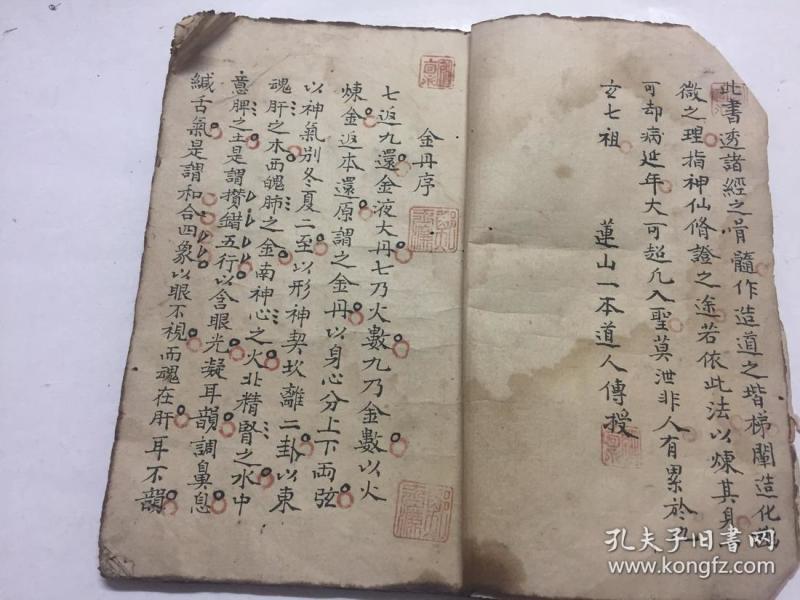 此書透諸經之骨髓作造道之堦梯闡造化
微之理指神仙脩證之途若依此法以煉其身
可却病延年大可超凡入聖莫泄非人有累於
玄七祖
蓮山一本道人傳授
金丹序
七返九還金液大丹七乃火數九乃金數以火
煉金返本還原謂之金丹以身心分上下兩弦
以神氣别冬夏二至以形神契坎離二卦以東
魂肝之木西魄肺之金南神心之火北精腎之水中
意脾之土是謂攅鏥五行以含眼光凝耳韻調鼻息
緘舌氣是謂和合四象以眼不視而魂在肝耳不韻
孔夫子旧书网
www.kongfz.com